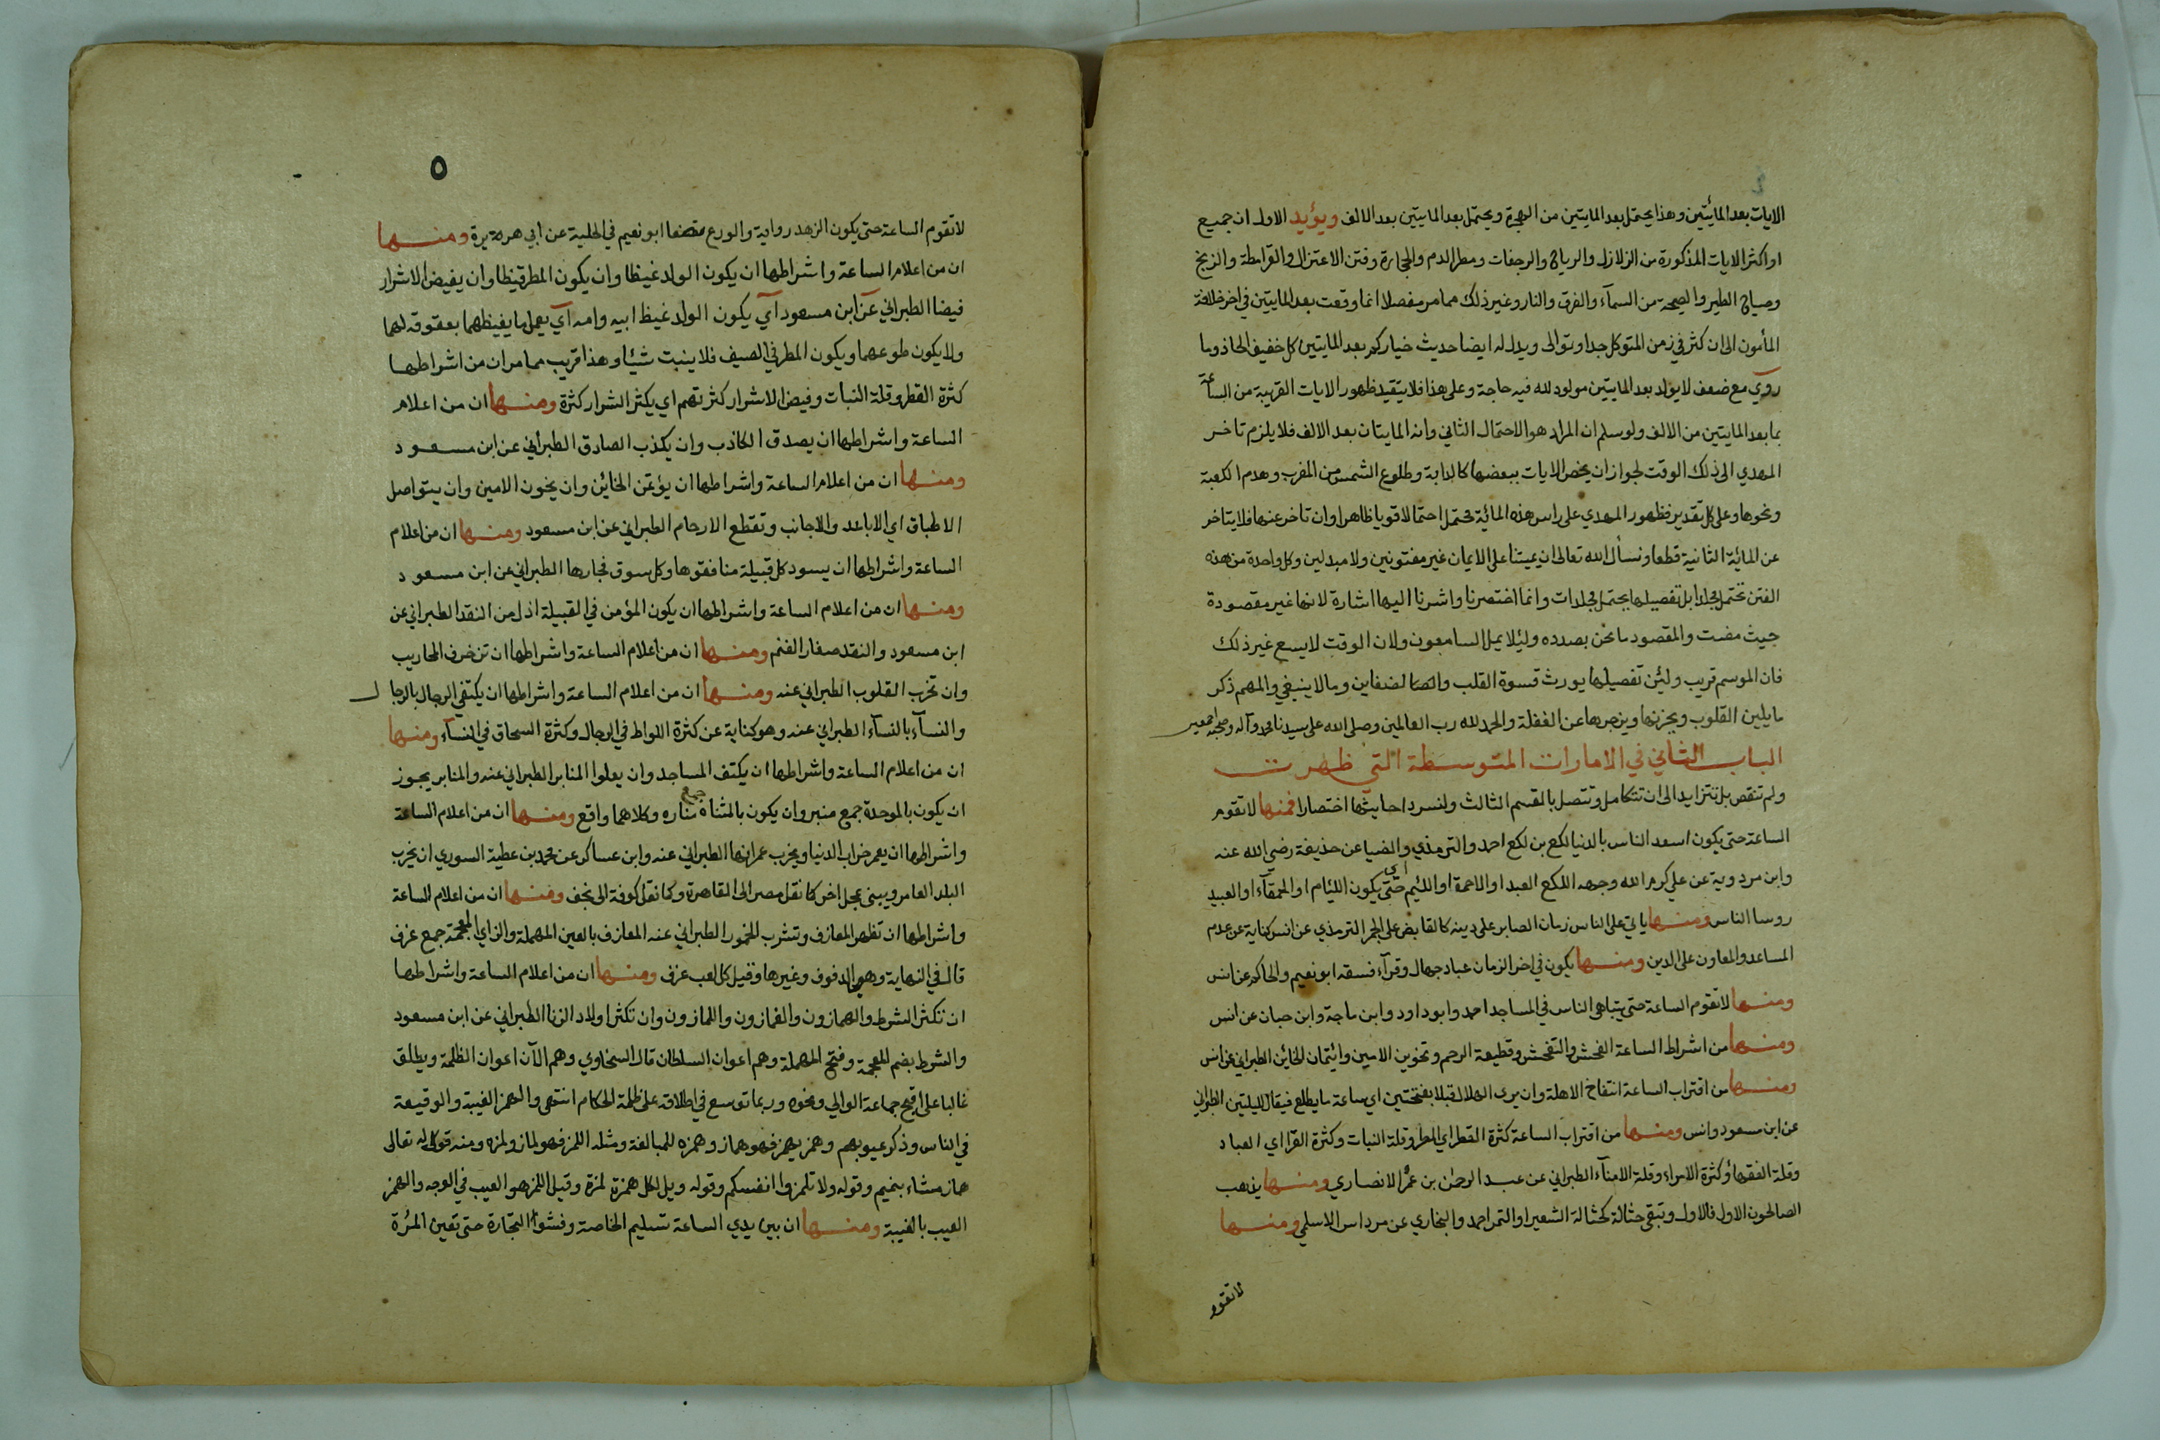 الايات بعد المائتين وهذا يحتمل بعد المايتين من الهجرة ويحتمل بعد المايتين بعد الالف ويؤيد الاول ان جميع
او اكثر الايات المذكورة من الزلازل والرياح والرجفات ومطر الدم والحجارة وفتن الاعتزال والقرامطة والزنج
وصياح الطير والصيحة من السمآء والفرق والنار وغير ذلك مما مر مفصلا انما وقعت بعد المايتين في اخر خلافة
المأمون الى ان كثر في زمن المتوكل جدا وتوالى ويدل له ايضا حديث خياركم بعد المايتين كل خفيف الحاذ وما
روي مع ضعف لا يولد بعد المايتين مولود لله فيه حاجة وعلى هذا فلا يتقيد ظهور الايات القريبة من الساعة
بما بعد المايتين من الالف ولو سلم ان المراد هو الاحتمال الثاني وانه المايتان بعد الالف فلا يلزم تاخر
المهدي الى ذلك الوقت لجواز ان يخص الايات ببعضها كالدابة وطلوع الشمس من المغرب وهدم الكعبة
ونحوها وعلى كل تقدير فظهور المهدي على راس هذه المائية محتمل احتمالا قويا ظاهرا وان تاخر عنها فلا يتاخر
عن المائية الثانية قطعا ونسأل الله تعالى ان يميتنا على الايمان غير مفتونين ولا مبدلين وكل واحدة من هذه
الفتن تحتمل مجلدا بل تفصيلها يحتمل مجلدات وانما اختصرنا واشرنا اليها اشارة لانها غير مقصودة
حيث مضت والمقصود ما نحن بصدده ولئلا يمل السامعون ولان الوقت لا يسع غير ذلك
فان الموسم قريب ولئن تفصيلها يورث قسوة القلب والضغاين وما لا ينبغي والمهم ذكر
ما يلين القلوب ويحزنها ويزجرها عن الغفلة والحمد لله رب العالمين وصلى الله على سيدنا محمد وآله وصحبه اجمعين
الباب الثاني في الامارات المتوسطة التي ظهرت
ولم تنقص بل تتزايد الى ان تتكامل وتتصل بالقسم الثالث ولنسرد احاديثها اختصارا فمنها لا تقوم
الساعة حتى يكون اسعد الناس بالدنيا لكع بن لكع احمد والترمذي والضيا عن حذيفة رضي الله عنه
وابن مردوية عن علي كرم الله وجهه اللكع العبد او الاحمق او اللئيم اي حتى يكون اللئام او الحمقآء او العبيد
روسا الناس ومنها ياتي على الناس زمان الصابر على دينه كالقابض على الجمر الترمذي عن انس كناية عن عدم
المساعد والمعاون على الدين ومنها يكون في اخر الزمان عباد جهال وقرآء فسقه ابو نعيم والحاكم عن انس
ومنها لا تقوم الساعة حتى يتباهى الناس في المساجد احمد وابو داود وابن ماجة وابن حبان عن انس
ومنها من اشراط الساعة الفحش والتفحش وقطيعة الرحم وتخوين الامين وائتمان الخائن الطبراني عن انس
ومنها من اقتراب الساعة انتفاخ الاهلة وان يرى الهلال قبلا بفتحتين اي ساعة ما يطلع فيقال لليلتين الطبراني
عن ابن مسعود وانس ومنها من اقتراب الساعة كثرة القطر اي المطر وقلة النبات وكثرة القرا اي العباد
وقلة الفقها وكثرة الامرا وقلة الامنآء الطبراني عن عبد الرحمن بن عمرو الانصاري ومنها يذهب
الصالحون الاول فالاول وتبقى حثالة كحثالة الشعير او التمر احمد والبخاري عن مرداس الاسلمي ومنها
لا تقوم
٥
لا تقوم الساعة حتى يكون الزهد رواية والورع تصنعا ابو نعيم في الحلية عن ابي هريرة ومنها
ان من اعلام الساعة واشراطها ان يكون الولد غيظا وان يكون المطر قيظا وان يفيض الاشرار
فيضا الطبراني عن ابن مسعود آي يكون الولد غيظ ابيه وامه آي يعمل ما يغيظهما بعقوقه لهما
ولا يكون طوعهما ويكون المطر في الصيف فلا ينبت شيئا وهذا قريب مما مر ان من اشراطها
كثرة القطر وقلة النبات وفيض الاشرار كثرتهم اي يكثر الشرار كثرة ومنها ان من اعلام
الساعة واشراطها ان يصدق الكاذب وان يكذب الصادق الطبراني عن ابن مسعود
ومنها ان من اعلام الساعة واشراطها ان يؤتمن الخائن وان يخون الامين وان يتواصل
الاطباق اي الاباعد والاجانب وتقطع الارحام الطبراني عن ابن مسعود ومنها ان من اعلام
الساعة واشراطها ان يسود كل قبيلة منافقوها وكل سوق فجارها الطبراني عن ابن مسعود
ومنها ان من اعلام الساعة واشراطها ان يكون المؤمن في القبيلة اذل من النقد الطبراني عن
ابن مسعود والنقد صغار الغنم ومنها ان من اعلام الساعة واشراطها ان تزخرف المحاريب
وان تخرب القلوب الطبراني عنه ومنها ان من اعلام الساعة واشراطها ان يكتفي الرجال بالرجال
والنسآء بالنسآء الطبراني عنه وهو كناية عن كثرة اللواط في الرجال وكثرة السحاق في النسآء ومنها
ان من اعلام الساعة واشراطها ان يكتف المساجد وان يعلوا المنابر الطبراني عنه والمنابر يجوز
ان يكون بالموحدة جمع منبر وان يكون بالمثناة جمع مناره وكلاهما واقع ومنها ان من اعلام الساعة
واشراطها ان يعمر خراب الدنيا ويخرب عمرانها الطبراني عنه وابن عساكر عن محمد بن عطية السوري ان يخرب
البلد العامر ويبنى بمحل اخر كما نقل مصر الى القاهرة وكما نقل كوفة الى نجف ومنها ان من اعلام الساعة
واشراطها ان تظهر المعازف وتشرب الخمور الطبراني عنه المعازف بالعين المهملة والزاي المعجمة جمع عزف
قال في النهاية وهي الدفوف وغيرها وقيل كل لعب عزف ومنها ان من اعلام الساعة واشراطها
ان تكثر الشرط والهمازون والغمازون واللمازون وان تكثر اولاد الزنا الطبراني عن ابن مسعود
والشرط بضم المعجمة وفتح المهملة وهم اعوان السلطان قال السخاوي وهم الآن اعوان الظلمة ويطلق
غالبا على اقبح جماعة الوالي ونحوه وربما توسع في اطلاقه على ظلمة الحكام انتهى والهمز الغيبة والوقيعة
في الناس وذكر عيوبهم وهمز يهمز فهو هماز وهمزه للمبالغة ومثله اللمز فهو لماز ولمزه ومنه قوله تعالى
هماز مشاء بنميم وقوله ولا تلمزوا انفسكم وقوله ويل لكل همزة لمزة وقيل اللمز هو العيب في الوجه والهمز
العيب بالغيبة ومنها ان بين يدي الساعة تسليم الخاصة وفشوا التجارة حتى تعين المرٔة